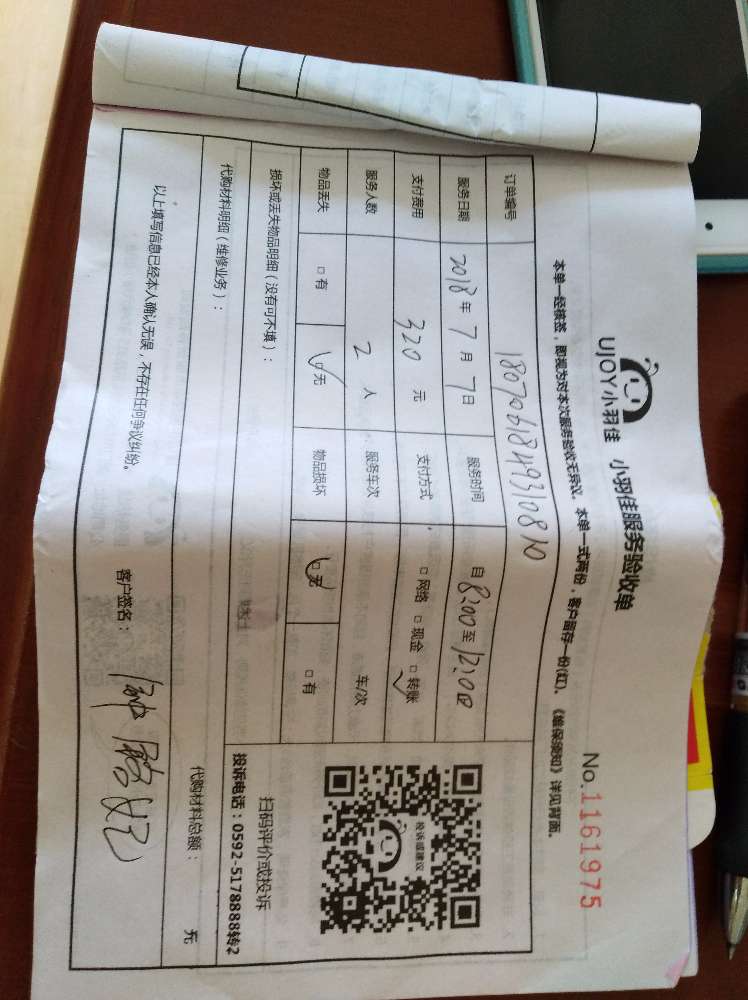 UJOY小羽佳 小羽佳服务验收单
No.1161975
本单一经核签，即视为对本次服务验收无异议。本单一式两份，客户留存一份(红)。《维保须知》详见背面。
订单编号 1807061849310810
服务日期 2018年 7月 7日 服务时间 自 8:00 至 12:00
支付费用 320 元 支付方式 □网络 □现金 □转账
服务人数 2 人 服务车次 车/次
物品丢失 □有 □无 物品损坏 □无 □有
损坏或丢失物品明细（没有可不填）：
扫码评价或投诉
投诉电话：0592-5178888转2
投诉或建议
代购材料明细（维修业务）：
代购材料总额： 元
以上填写信息已经本人确认无误，不存在任何争议纠纷。
客户签名：